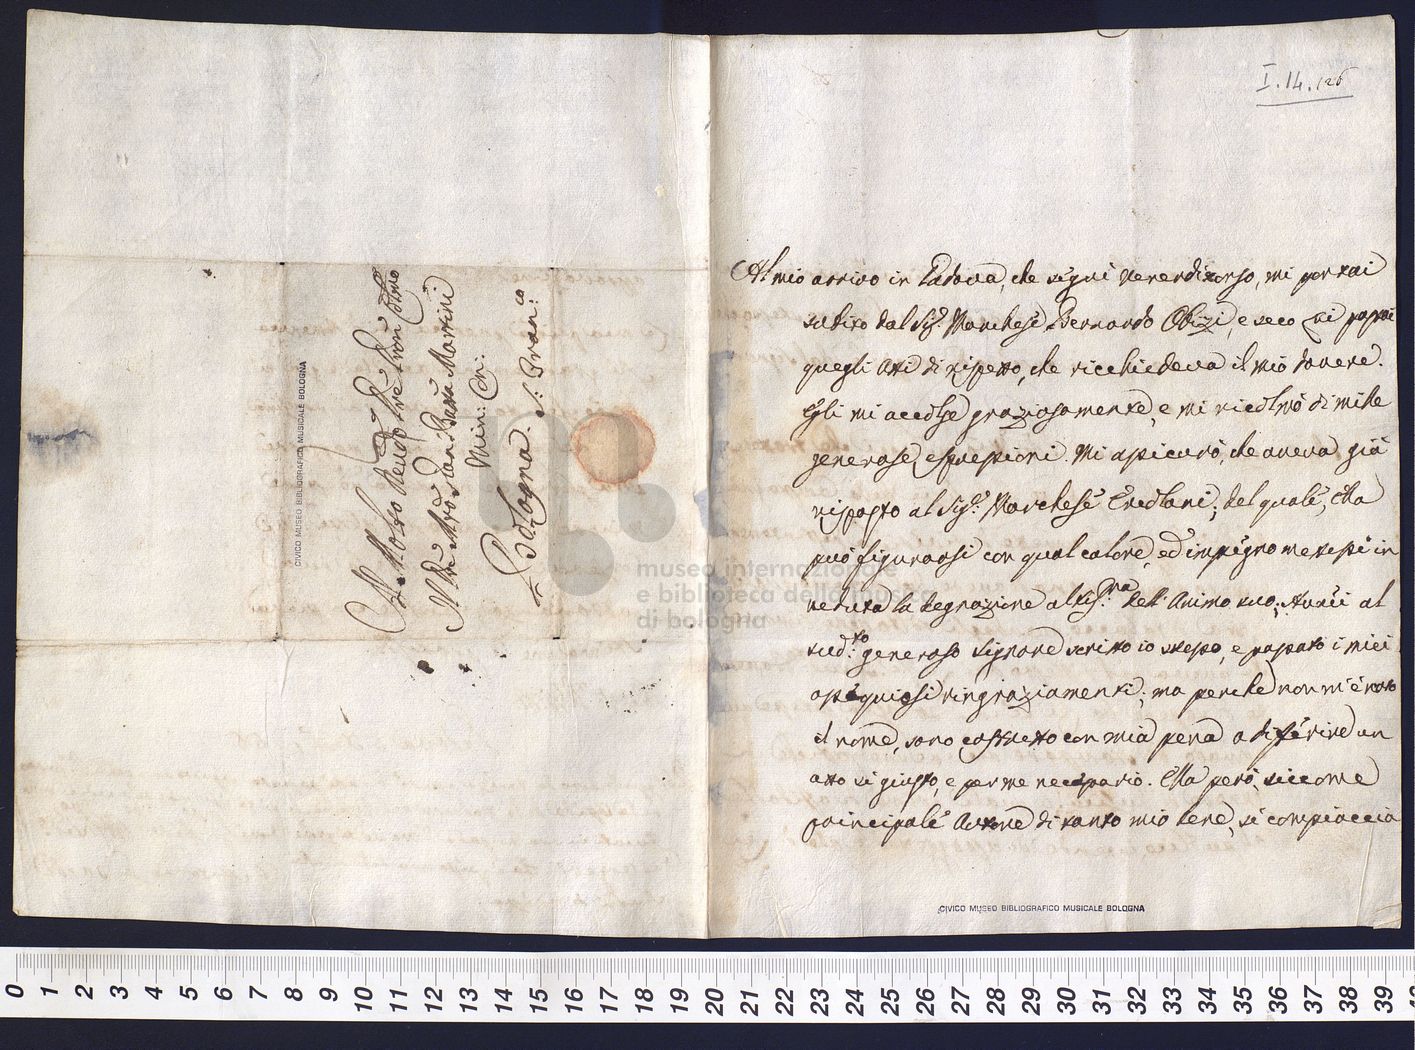 I.14.126
Al Molto Rendo Pre Pron Colmo
Il Pre Mro Giam Batta Martini
Min: Con:
Bologna. S: Fran:co
CIVICO MUSEO BIBLIOGRAFICO MUSICALE BOLOGNA
Al mio arrivo in Padova, che seguì venerdì scorso, mi portai
subito dal Sig.r Marchese Bernardo Obizi, e seco lui passai
quegli atti di rispetto, che ricchiedeva il mio dovere.
Egli mi accolse graziosamente, e mi ricolmò di mille
generose espressioni. Mi assicurò, che aveva già
risposto al Sig.r Marchese Ercolani; del quale, Ella
può figurarsi con qual calore, ed impegno me stesse in
veduta la degnazione dell'Animo suo; Avrei al
sud.to generoso Signore scritto io stesso, e passato i miei
ossequiosi ringraziamenti; ma perche non m'è noto
il nome, sono costretto con mia pena a differire un
atto si giusto, e per me necessario. Ella però, siccome
principale Autore di tanto mio bene, si compiaccia
CIVICO MUSEO BIBLIOGRAFICO MUSICALE BOLOGNA
museo internazionale
e biblioteca della musica
di bologna
0 1 2 3 4 5 6 7 8 9 10 11 12 13 14 15 16 17 18 19 20 21 22 23 24 25 26 27 28 29 30 31 32 33 34 35 36 37 38 39